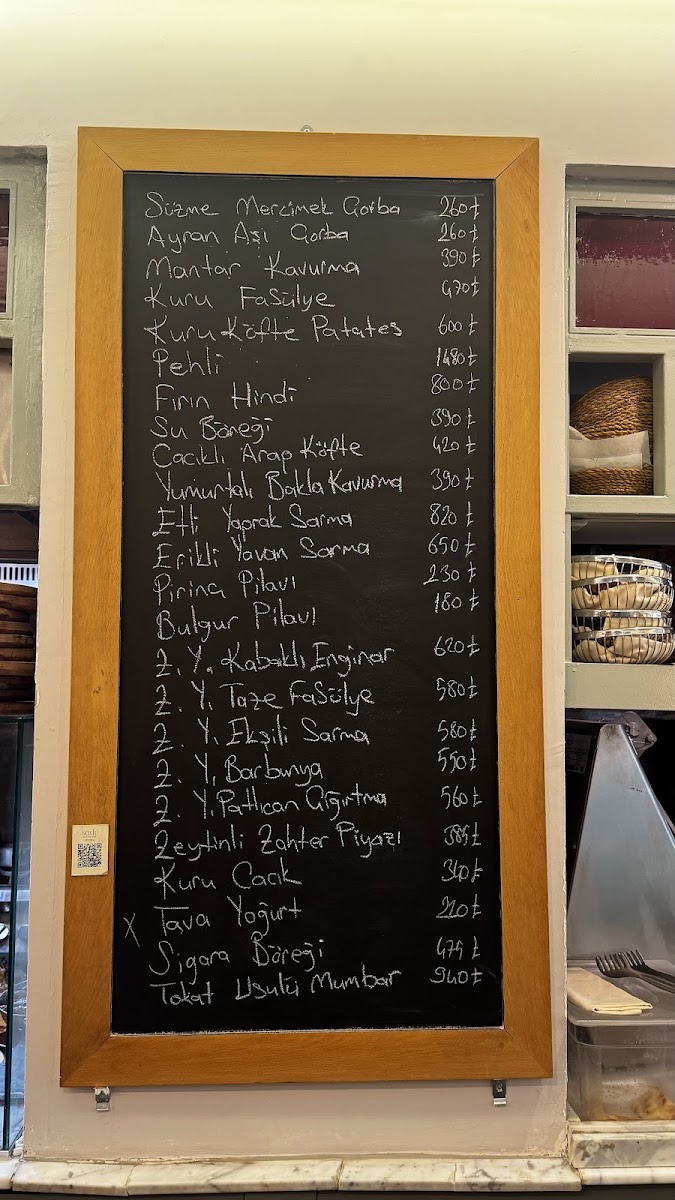 Süzme Mercimek Çorba 260₺
Ayran Aşı Çorba 260₺
Mantar Kavurma 390₺
Kuru Fasülye 470₺
Kuru Köfte Patates 600₺
Pehli 1480₺
Fırın Hindi 800₺
Su Böreği 390₺
Cacıklı Arap Köfte 420₺
Yumurtalı Bakla Kavurma 390₺
Etli Yaprak Sarma 820₺
Erikli Yavan Sarma 650₺
Pirinç Pilavı 230₺
Bulgur Pilavı 180₺
Z. Y. Kabaklı Enginar 620₺
Z. Y. Taze Fasülye 580₺
Z. Y. Ekşili Sarma 580₺
Z. Y. Barbunya 550₺
Z. Y. Patlıcan Çığırtma 560₺
Zeytinli Zahter Piyazı 385₺
Kuru Cacık 340₺
X Tava Yoğurt 220₺
Sigara Böreği 475₺
Tokat Usulü Mumbar 940₺